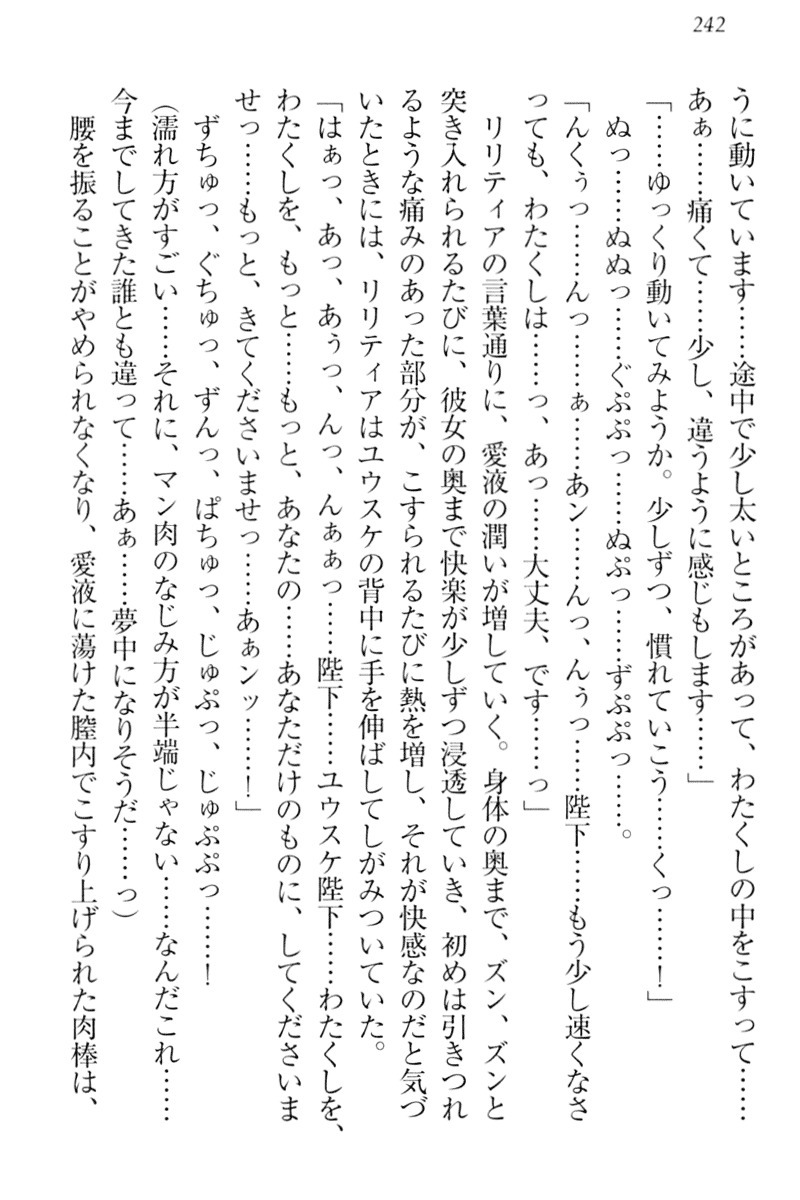 242
うに動いています……途中で少し太いところがあって、わたくしの中をこすって……
あぁ……痛くて……少し、違うように感じもします……」
「……ゆっくり動いてみようか。少しずつ、慣れていこう……くっ……！」
ぬっ……ぬぬっ……ぐぷぷっ……ぬぷっ……ずぷぷっ……。
「んくぅっ……んっ……ぁ……あン……んっ、んぅっ……陛下……もう少し速くなさ
っても、わたくしは……っ、あっ……大丈夫、です……っ」
リリティアの言葉通りに、愛液の潤いが増していく。身体の奥まで、ズン、ズンと
突き入れられるたびに、彼女の奥まで快楽が少しずつ浸透していき、初めは引きつれ
るような痛みのあった部分が、こすられるたびに熱を増し、それが快感なのだと気づ
いたときには、リリティアはユウスケの背中に手を伸ばしてしがみついていた。
「はぁっ、あっ、あぅっ、んっ、んぁぁっ……陛下……ユウスケ陛下……わたくしを、
わたくしを、もっと……もっと、あなたの……あなただけのものに、してくださいま
せっ……もっと、きてくださいませっ……あぁンッ……！」
ずちゅっ、ぐちゅっ、ずんっ、ぱちゅっ、じゅぷっ、じゅぷぷっ……！
（濡れ方がすごい……それに、マン肉のなじみ方が半端じゃない……なんだこれ……
今までしてきた誰とも違って……あぁ……夢中になりそうだ……っ）
腰を振ることがやめられなくなり、愛液に蕩けた膣内でこすり上げられた肉棒は、